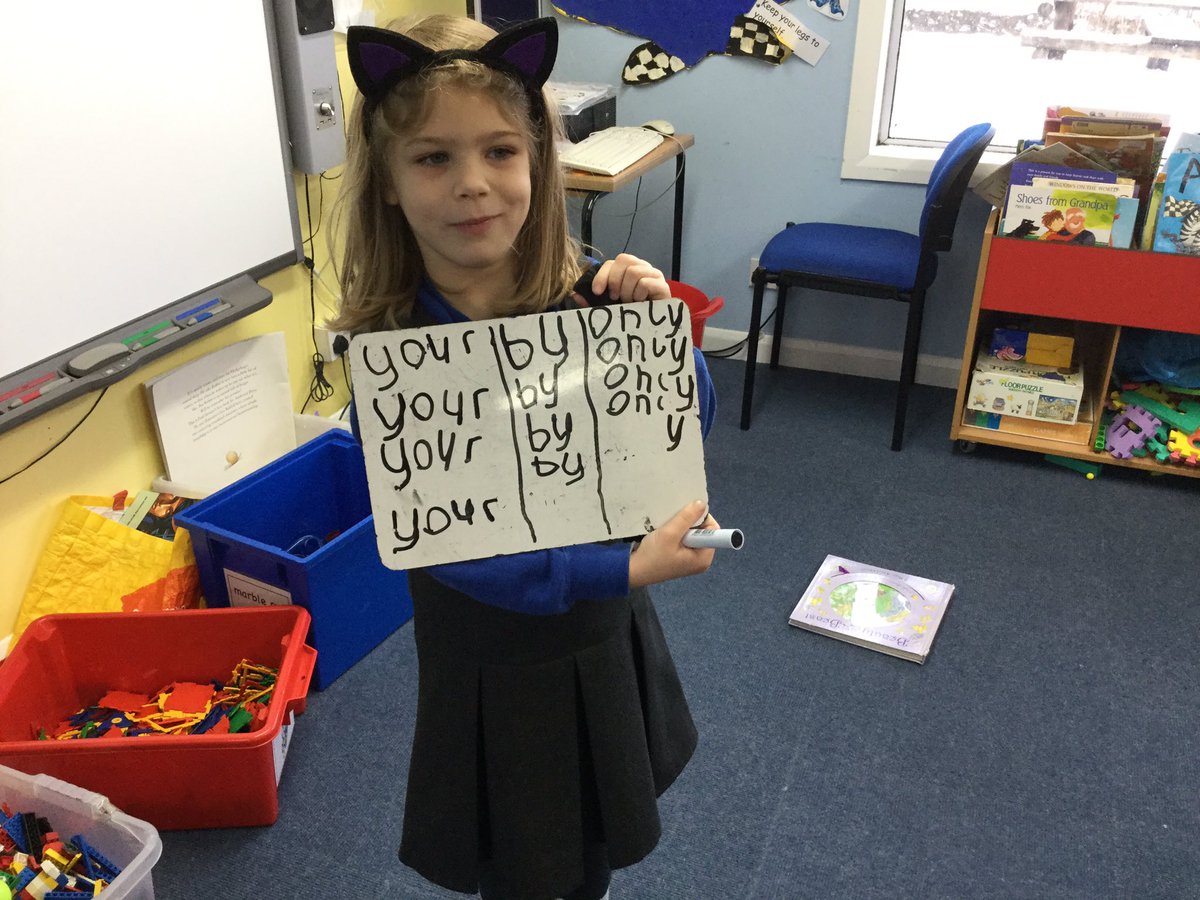 Keep your legs to
yourself
WINDOWS ON THE WORLD
Shoes from Grandpa
FLOOR PUZZLE
your by only
your by only
your by only
your by only
y
marble
Beauty and the Beast